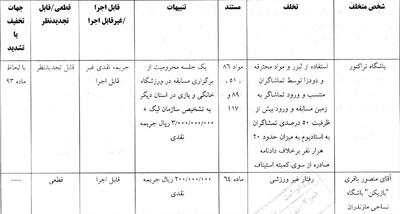 شخص متخلف
تخلف
مستند
تنبیهات
قابل اجرا
/غیرقابل
اجرا
قطعی/قابل
تجدیدنظر
جهات
تخفیف
یا
تشدید
باشگاه تراکتور
استفاده از لیزر و مواد محترقه
و دودزا توسط تماشاگران
منتسب و ورود تماشاگر به
زمین مسابقه و ورود بیش از
ظرفیت ۵۰ درصدی تماشاگران
به استادیوم به میزان حدود ۲۰
هزار نفر برخلاف دادنامه
صادره از سوی کمیته استیناف
مواد ۸۶
، ۵۱ ،
۸۹ و
۱۱۷
یک جلسه محرومیت از
برگزاری مسابقه در ورزشگاه
خانگی و بازی در استان دیگر
به تشخیص سازمان لیگ +
۳/۰۰۰/۰۰۰/۰۰۰ ریال جریمه
نقدی
جریمه نقدی غیر
قابل اجرا
قابل تجدیدنظر
با لحاظ
ماده ۹۳
آقای منصور باقری
"بازیکن" باشگاه
نساجی مازندران
رفتار غیر ورزشی
ماده ۶۴
۲۰۰/۰۰۰/۰۰۰ ریال جریمه
نقدی
قابل اجرا
قطعی
---